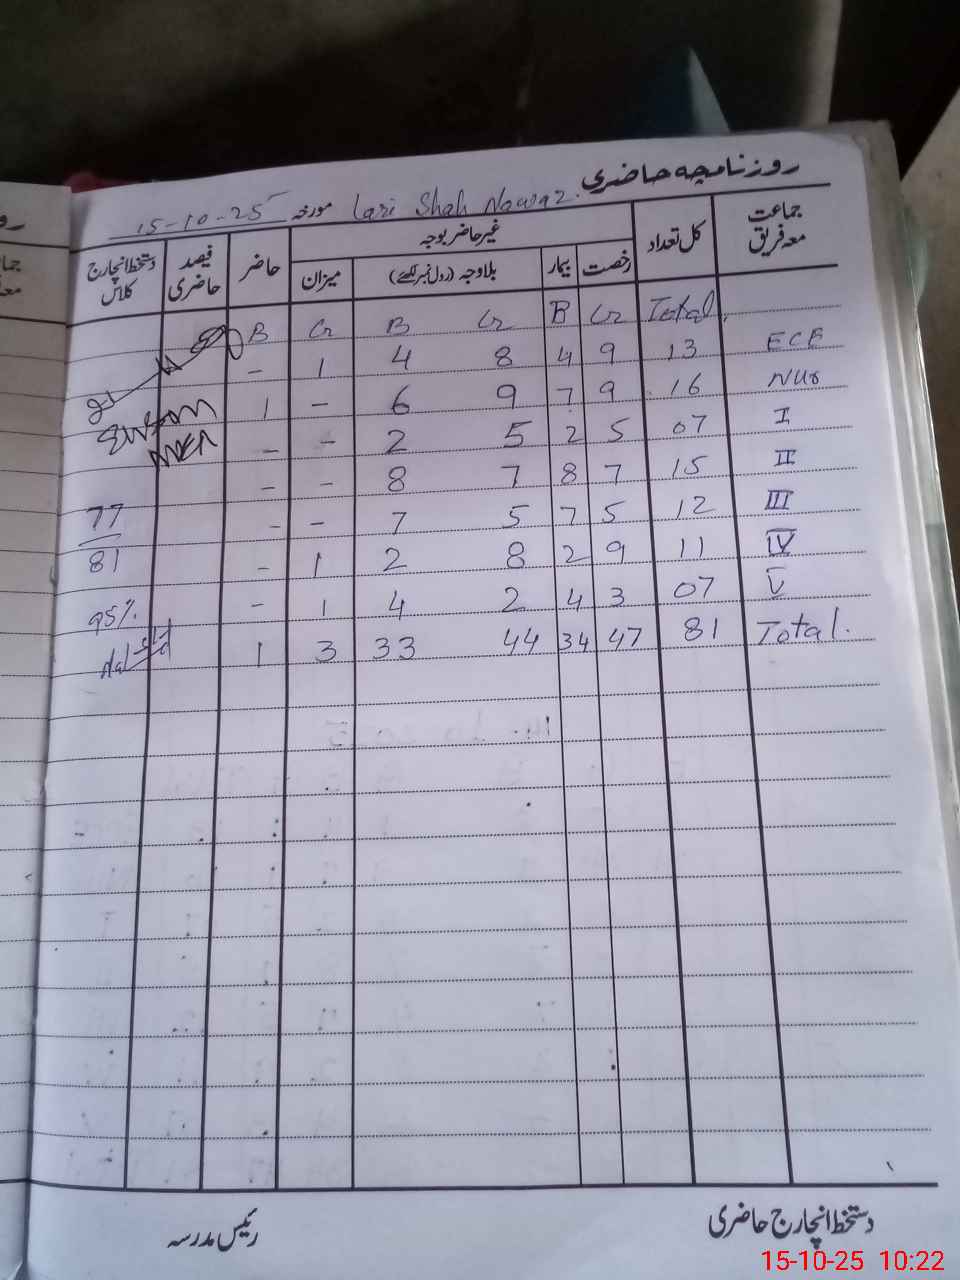 روزنامچہ حاضری
Lari Shah Nawaz. مورخہ 15-10-25
جماعت معہ فریق کل تعداد غیر حاضر بوجہ حاضر فیصد حاضری دستخط انچارج کلاس
رخصت بیمار بلاوجہ (رول نمبر لکھے) میزان
Total Gr B Gr B Gr B
ECE 13 9 4 8 4 1 -
Nur 16 9 7 9 6 - 1
I 07 5 2 5 2 - -
II 15 7 8 7 8 - -
III 12 5 7 5 7 - - 77
IV 11 9 2 8 2 1 - 81
V 07 3 4 2 4 1 - 95%
Total. 81 47 34 44 33 3 1
دستخط انچارج حاضری رئیس مدرسہ
15-10-25 10:22